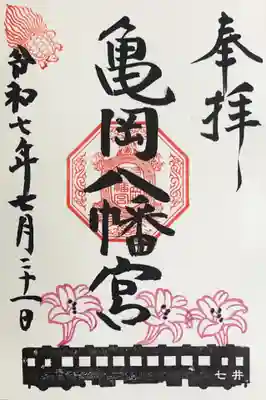 奉拝
亀岡八幡宮
令和七年七月二十一日
七井